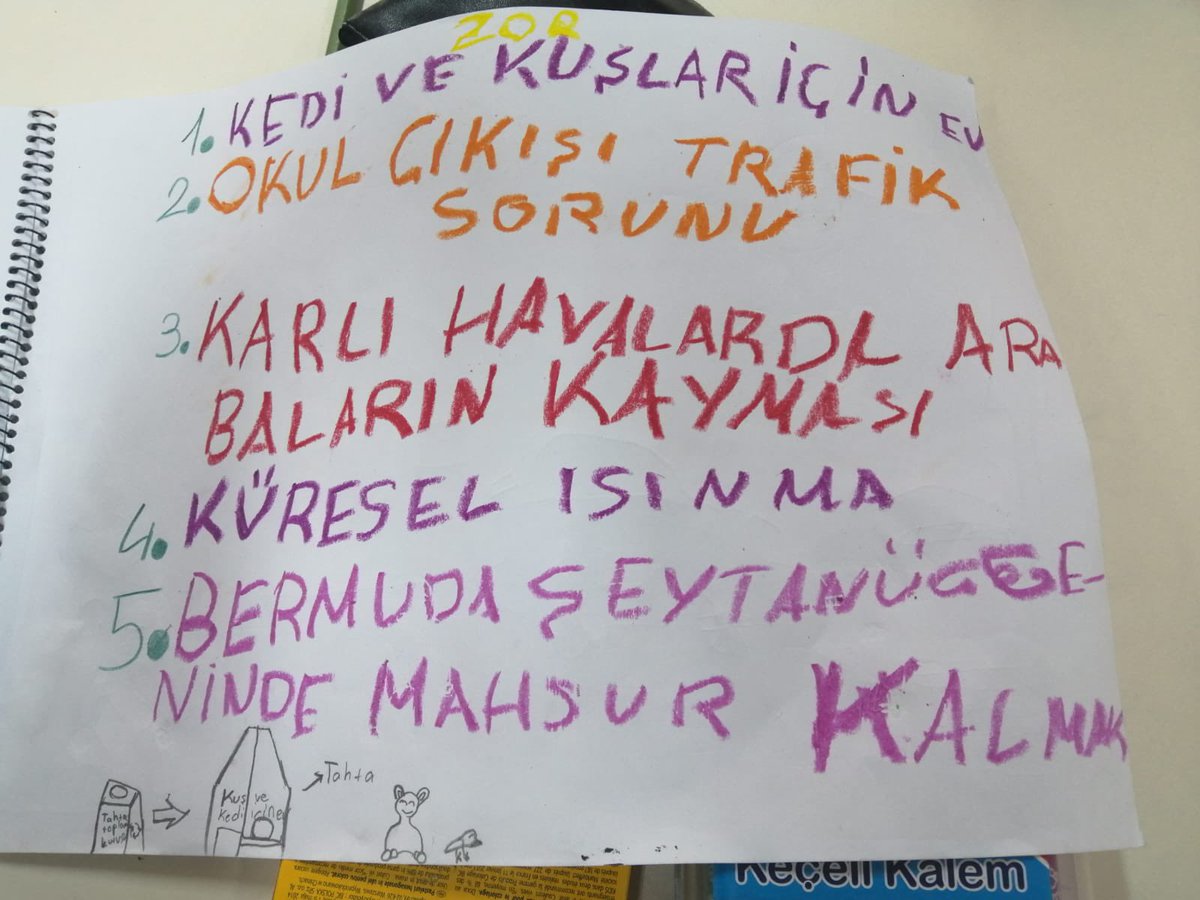 ZOR
1. KEDİ VE KUŞLAR İÇİN EV
2. OKUL ÇIKIŞI TRAFİK
SORUNU
3. KARLI HAVALARDA ARA
BALARIN KAYMASI
4. KÜRESEL ISINMA
5. BERMUDA ŞEYTANÜÇGE-
NİNDE MAHSUR KALMAK
Tahta
Kuş ve
kedi için ev
Tahta
toplama
kutusu
Keçeli Kalem